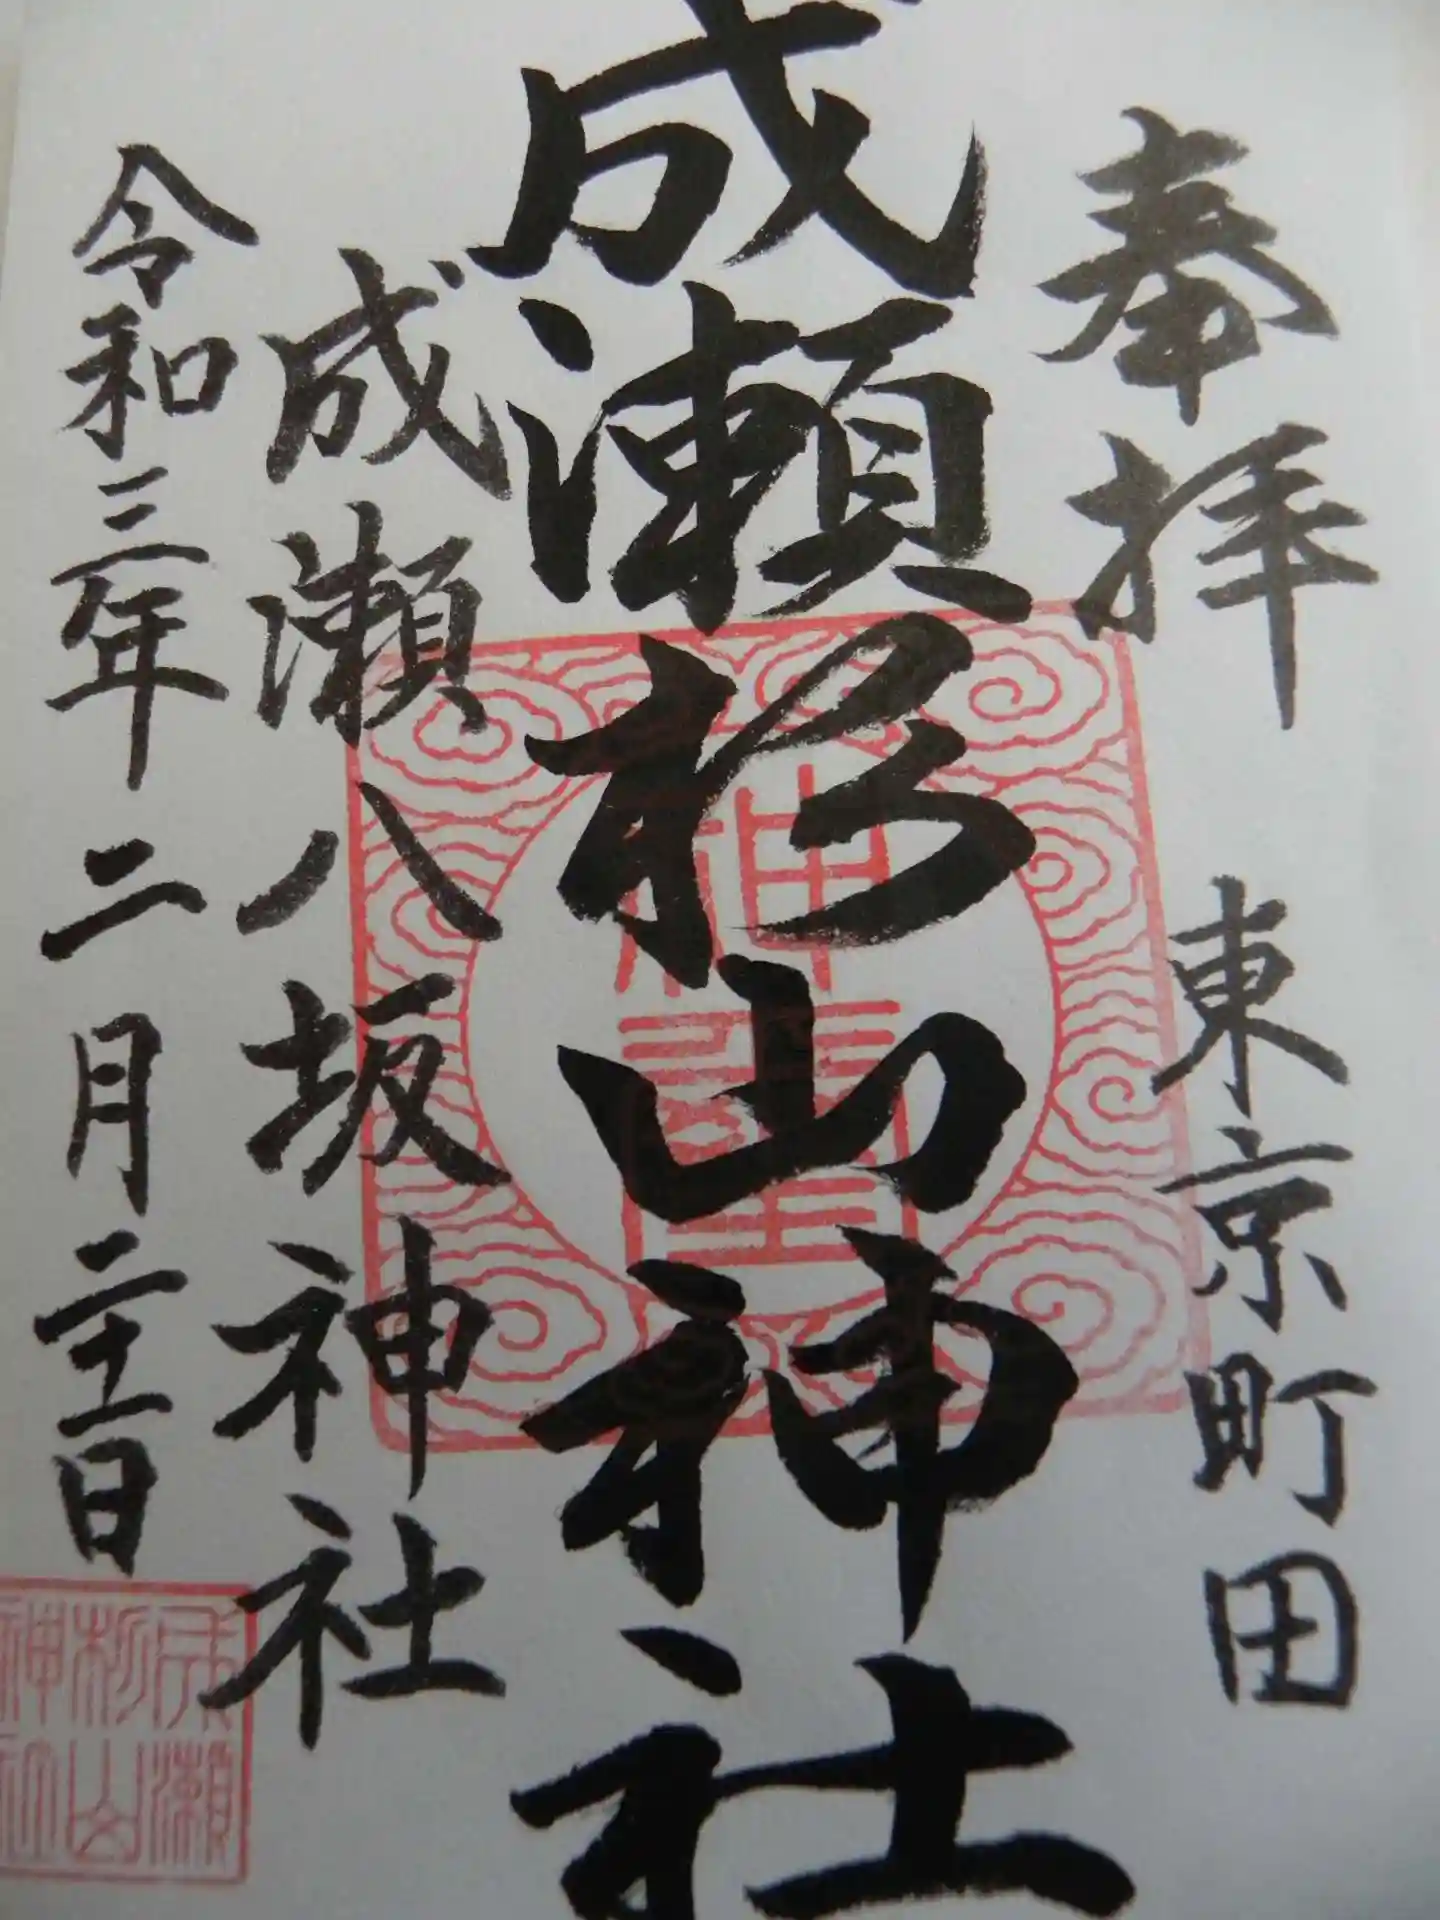 奉拝 東京町田
成瀬杉山神社
成瀬八坂神社
令和三年二月二十一日
神璽
成瀬
杉山
神社